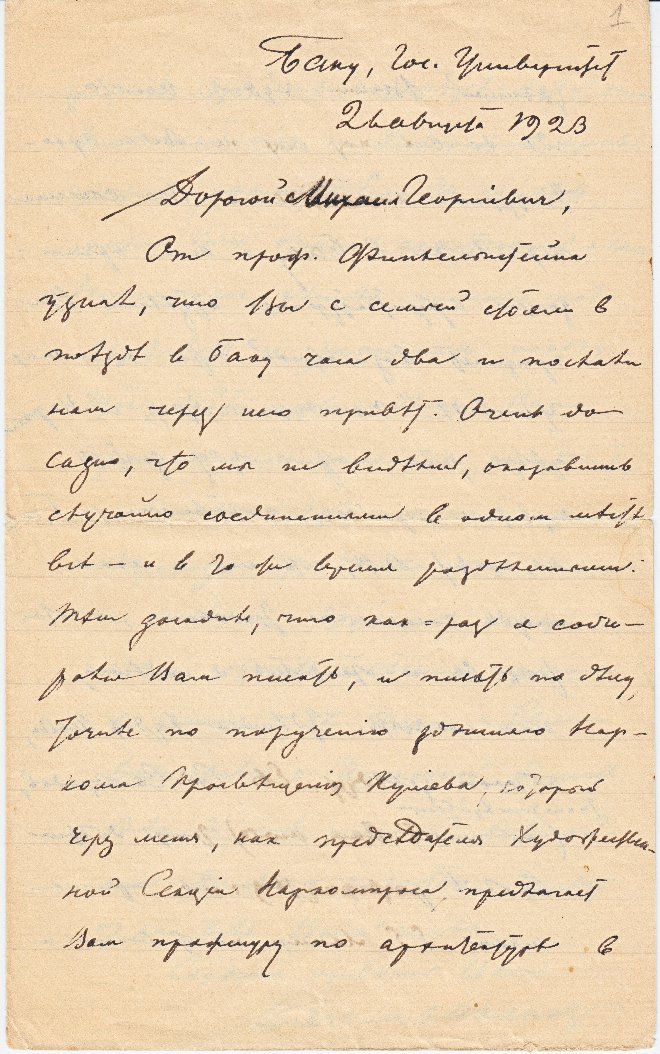 1
Баку, Гос. Университет
26 августа 1923
Дорогой Михаил Георгіевич,
От проф. Финкельштейна
узналъ, что Вы с семьей стояли в
поѣздѣ в Баку часа два и послали
нам через него привѣт. Очень до-
садно, что мы не видѣлись, оказавшись
случайно соединенными в одном мѣстѣ
всѣ – и в то же время раздѣленными.
Тѣм досаднѣе, что как-раз я соби-
рался Вам писать, и писать по дѣлу,
точнѣе по порученію здѣшняго Нар-
кома Просвѣщенія Кулиева, который
через меня, как предсѣдателя Художествен-
ной Секціи Наркомпроса предлагает
Вам профессуру по архитектурѣ в